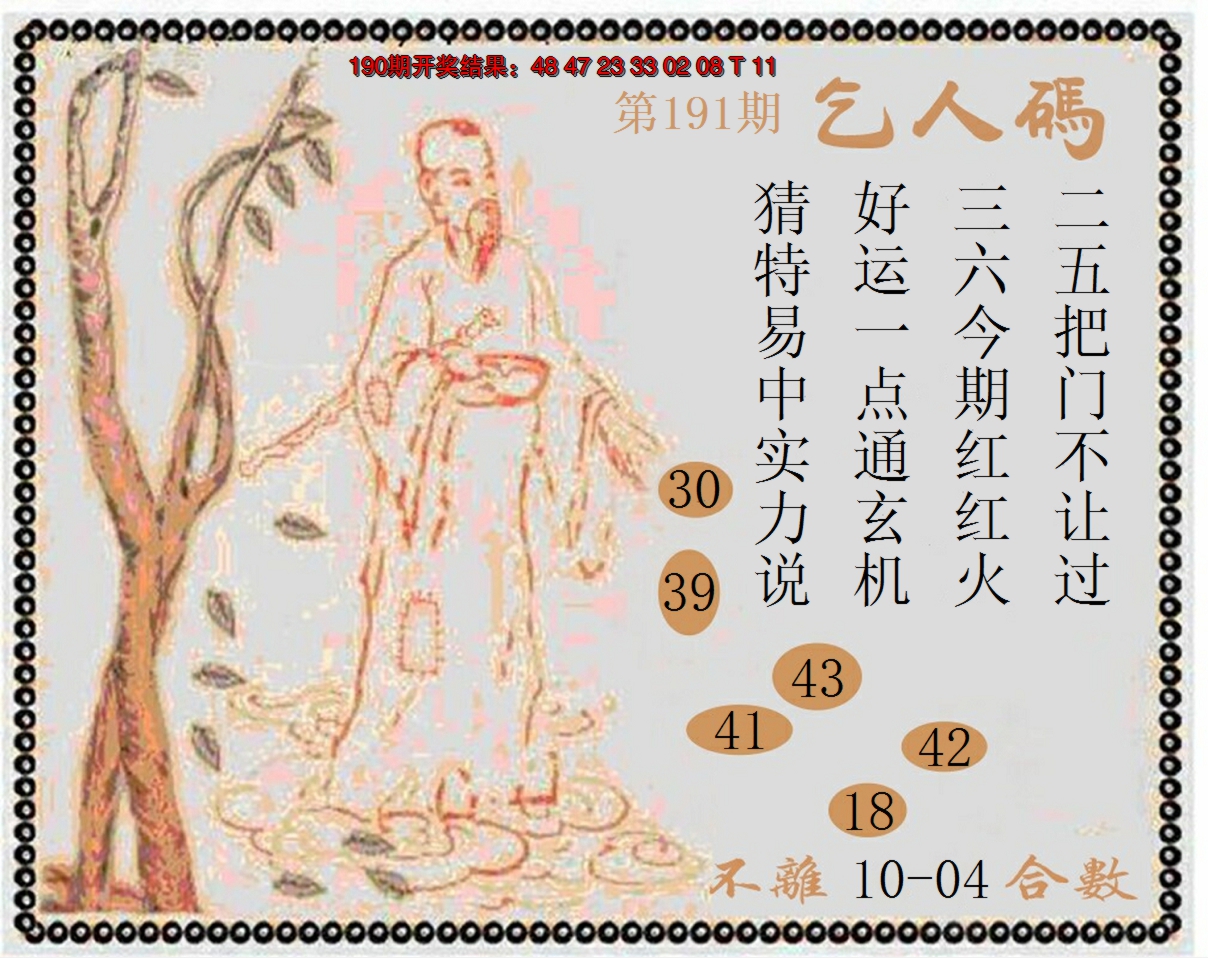 190期开奖结果：48 47 23 33 02 08 T 11
第191期
乞人碼
二五把门不让过
三六今期红红火
好运一点通玄机
猜特易中实力说
30
39
43
41
42
18
不離 10-04 合數